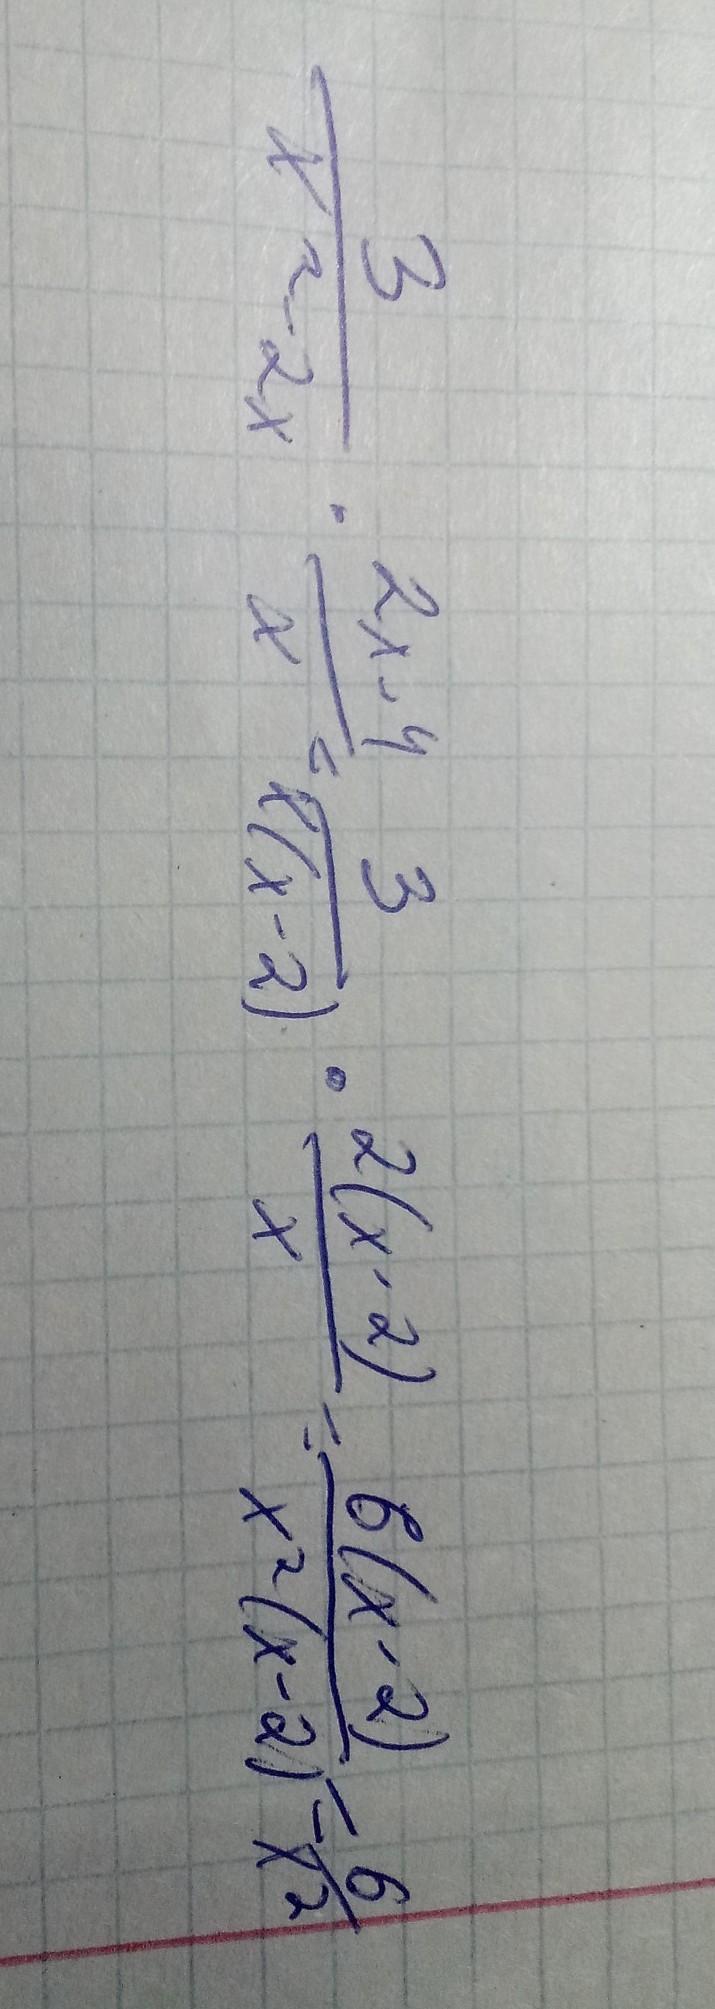 3/(x²-2x) · (2x-4)/x = 3/(x(x-2)) · 2(x-2)/x = 6(x-2)/(x²(x-2)) = 6/x²